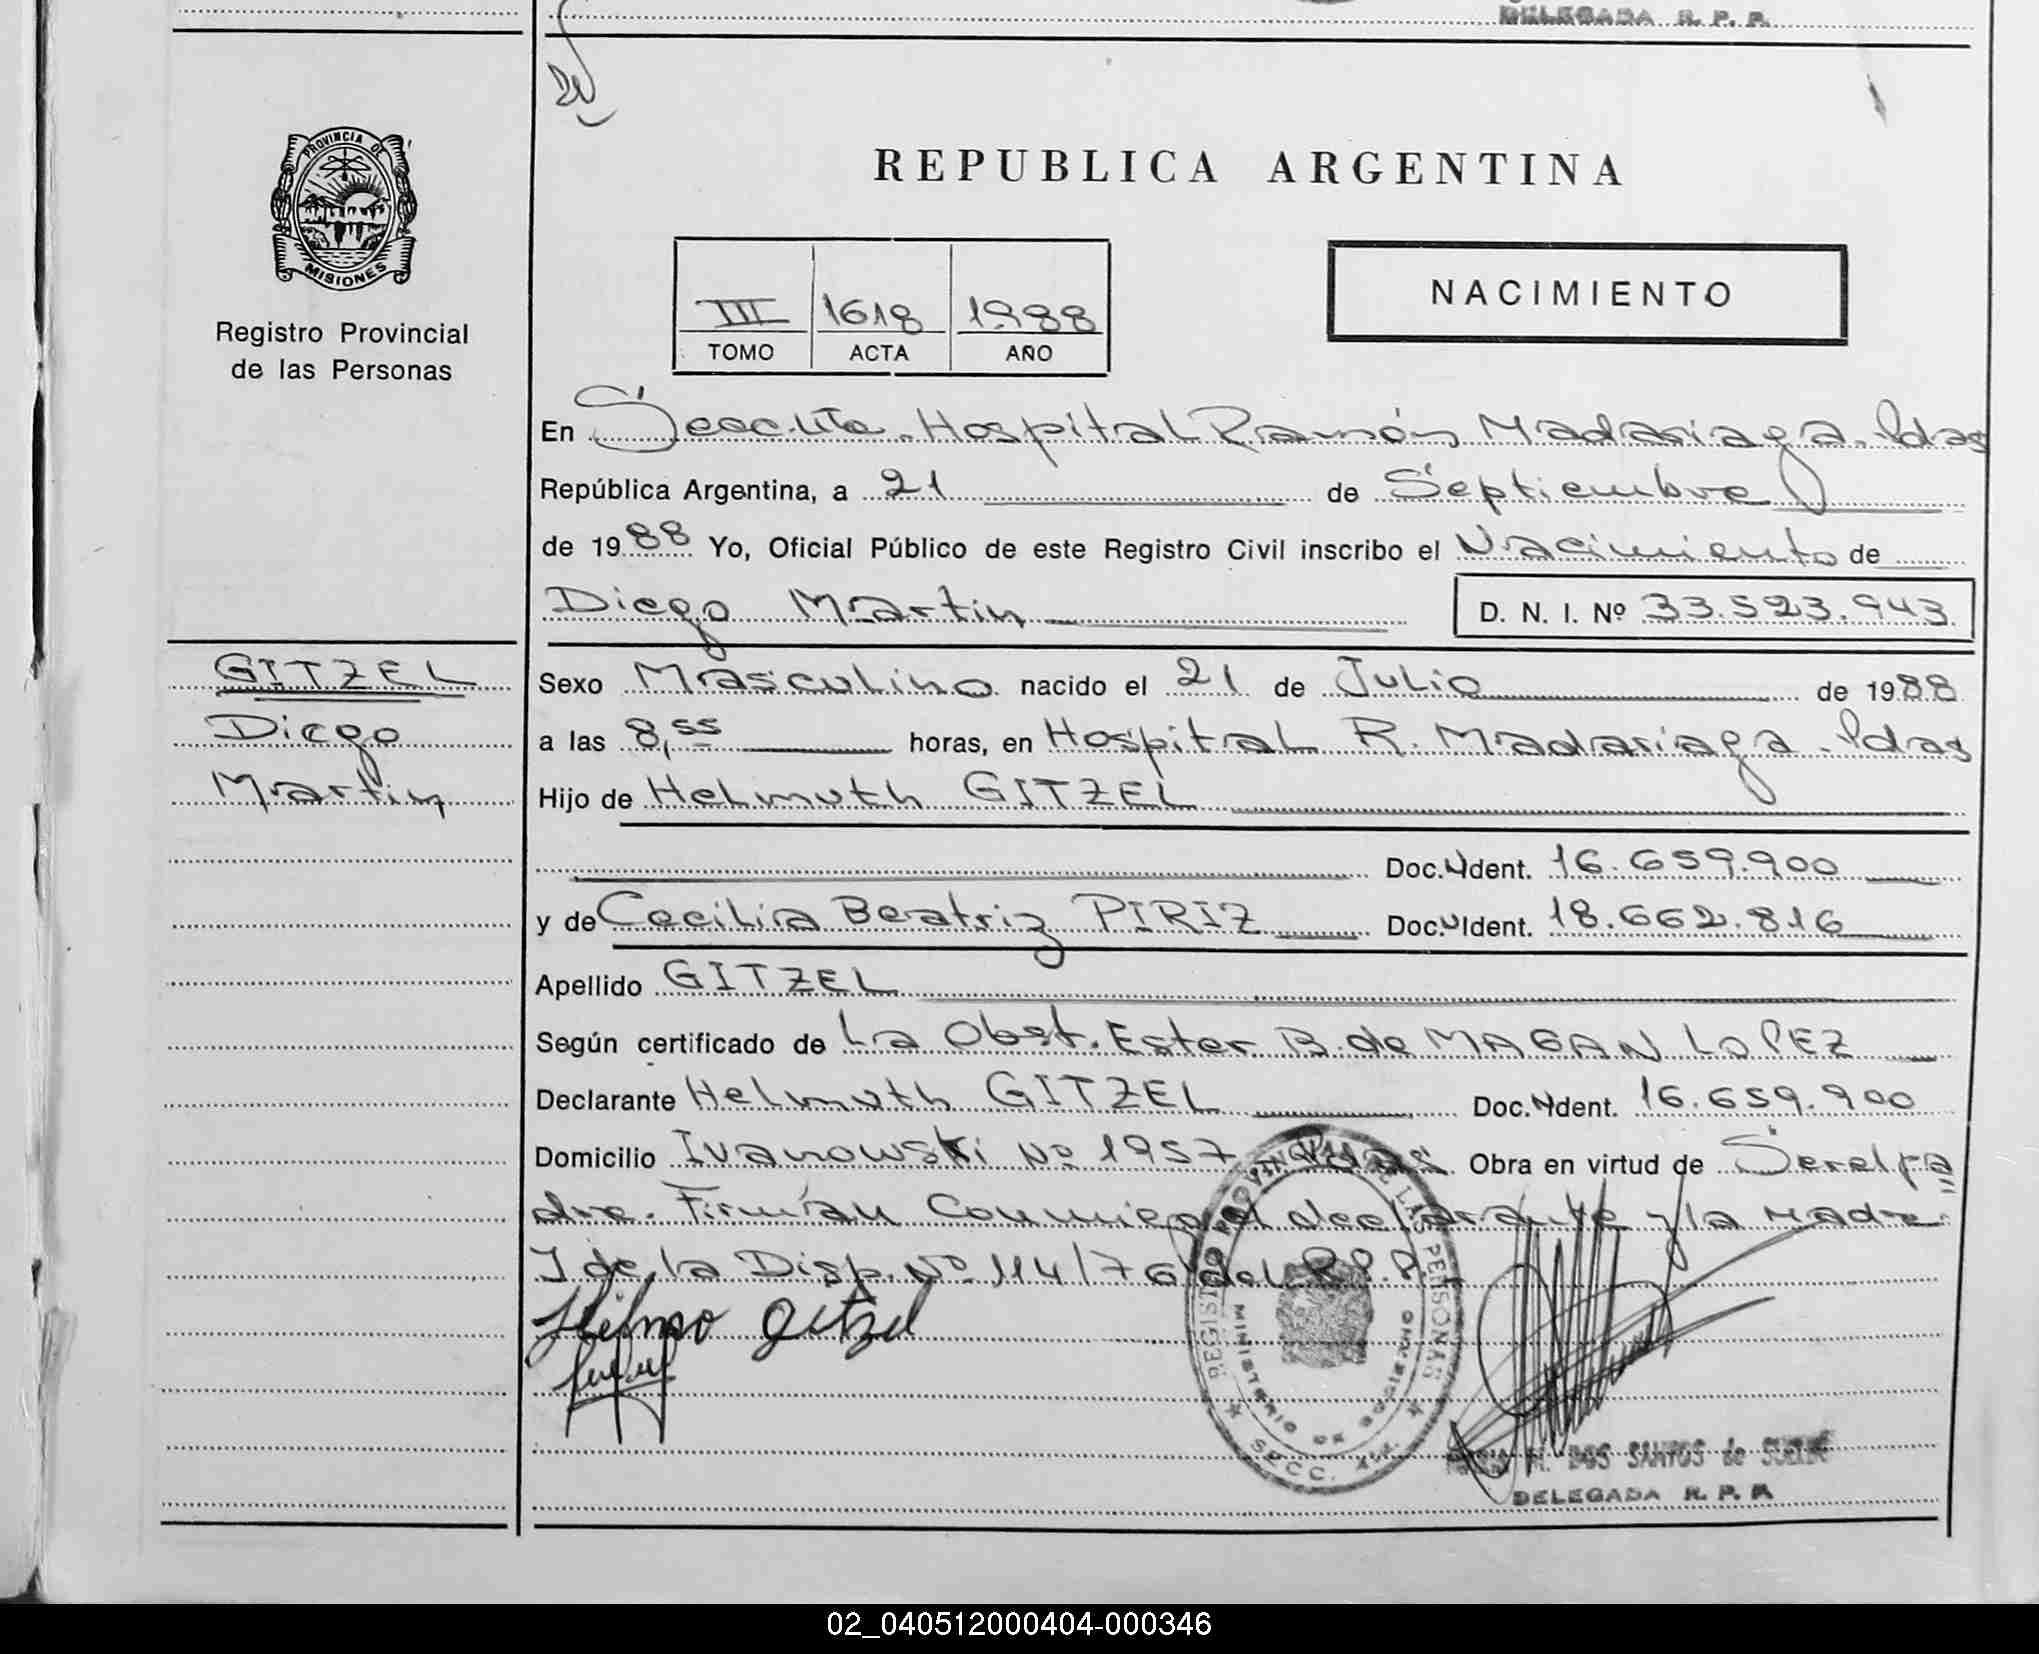 DELEGADA R. P. P.
PROVINCIA DE
MISIONES
Registro Provincial
de las Personas
REPUBLICA ARGENTINA
III 1618 1988
TOMO ACTA AÑO
NACIMIENTO
En Hospital Ramón Madariaga. Pdas
República Argentina, a 21 de Septiembre
de 1988 Yo, Oficial Público de este Registro Civil inscribo el Nacimiento de
Diego Martin
D. N. I. Nº 33.523.943
GITZEL
Diego
Martin
Sexo Masculino nacido el 21 de Julio de 1988
a las 8,55 horas, en Hospital R. Madariaga. Pdas
Hijo de Helmuth GITZEL
Doc. Ident. 16.659.900
y de Cecilia Beatriz PIRIZ Doc. Ident. 18.662.816
Apellido GITZEL
Según certificado de La Obst. Ester B. de MAGAN LOPEZ
Declarante Helmuth GITZEL Doc. Ident. 16.659.900
Domicilio Ivanowski Nº 1957 Pdas Obra en virtud de Ser el pa
dre. Firman Conmigo el declarante y la Madre
Y de la Disp. Nº 114/76 del R.P.P.
Hilmo Gitzel
REGISTRO PROVINCIAL DE LAS PERSONAS
MINISTERIO DE GOBIERNO
SECC.
M. DOS SANTOS de
DELEGADA R. P. P.
02_040512000404-000346